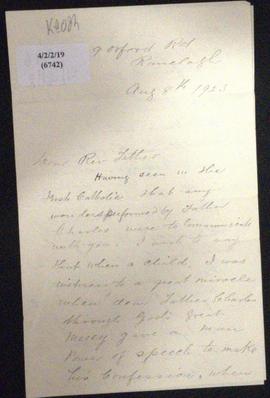 4/2/2/19
(6742)
9 Oxford Rd
Ranelagh
Aug 8th 1923
Dear Rev Father
Having seen in the
Irish Catholic that any
wonders performed by Father
Charles were to Communicate
with you. I wish to say
that when a child, I was
witness to a great miracle
when dear Father Charles
through God's Great
Mercy give a man
Power of speech to make
his Confession, when